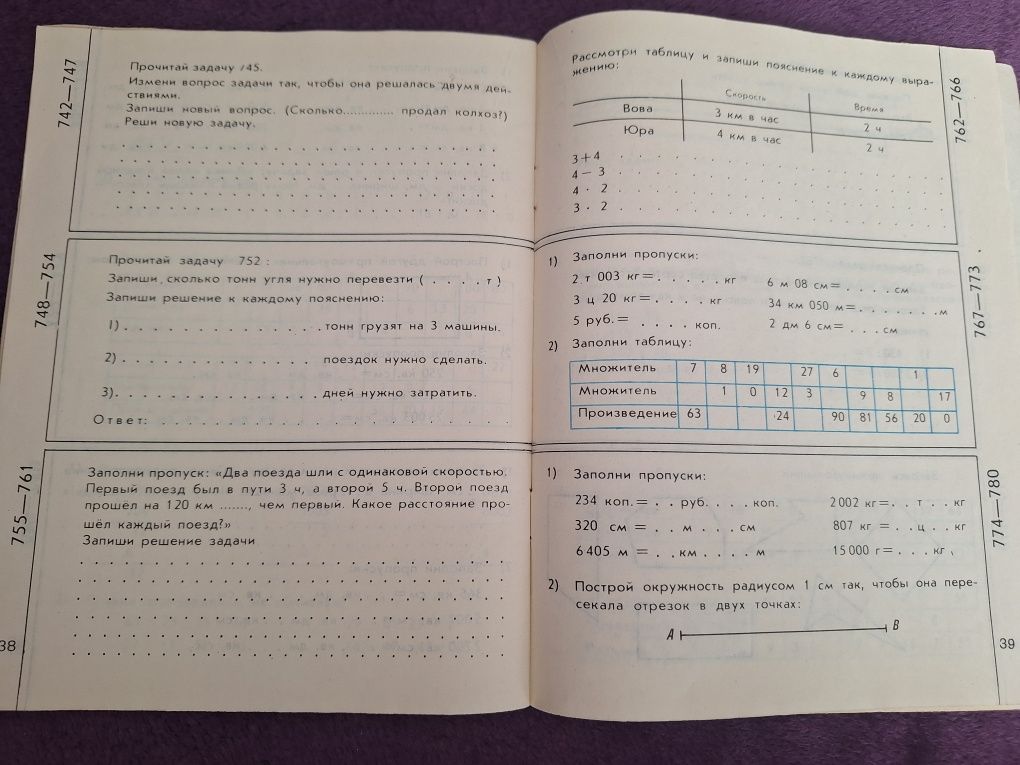 742—747
Прочитай задачу 745.
Измени вопрос задачи так, чтобы она решалась двумя дей-
ствиями.
Запиши новый вопрос. (Сколько.............. продал колхоз?)
Реши новую задачу.
748—754
Прочитай задачу 752:
Запиши, сколько тонн угля нужно перевезти ( . . . . т )
Запиши решение к каждому пояснению:
1) . . . . . . . . . . . . . . . . тонн грузят на 3 машины.
2) . . . . . . . . . . . . . . . . поездок нужно сделать.
3) . . . . . . . . . . . . . . . . дней нужно затратить.
Ответ: . . . . . . . . . . . . . . . . . . . . . . . . . . . .
755—761
Заполни пропуск: «Два поезда шли с одинаковой скоростью.
Первый поезд был в пути 3 ч, а второй 5 ч. Второй поезд
прошёл на 120 км ........, чем первый. Какое расстояние про-
шёл каждый поезд?»
Запиши решение задачи
38
762—766
Рассмотри таблицу и запиши пояснение к каждому выра-
жению:
Скорость Время
Вова 3 км в час 2 ч
Юра 4 км в час 2 ч
3 + 4
4 — 3
4 · 2
3 · 2
767—773
1) Заполни пропуски:
2 т 003 кг = . . . . . . кг 6 м 08 см = . . . . см
3 ц 20 кг = . . . . . кг 34 км 050 м = . . . . . . . . м
5 руб. = . . . . коп. 2 дм 6 см = . . . см
2) Заполни таблицу:
Множитель 7 8 19 27 6 1
Множитель 1 0 12 3 9 8 17
Произведение 63 24 90 81 56 20 0
774—780
1) Заполни пропуски:
234 коп. = . . руб. . . . коп. 2002 кг = . . т . . кг
320 см = . . м . . . см 807 кг = . . ц . . кг
6405 м = . . км . . . . м 15 000 г = . . . кг
2) Построй окружность радиусом 1 см так, чтобы она пере-
секала отрезок в двух точках:
A B
39